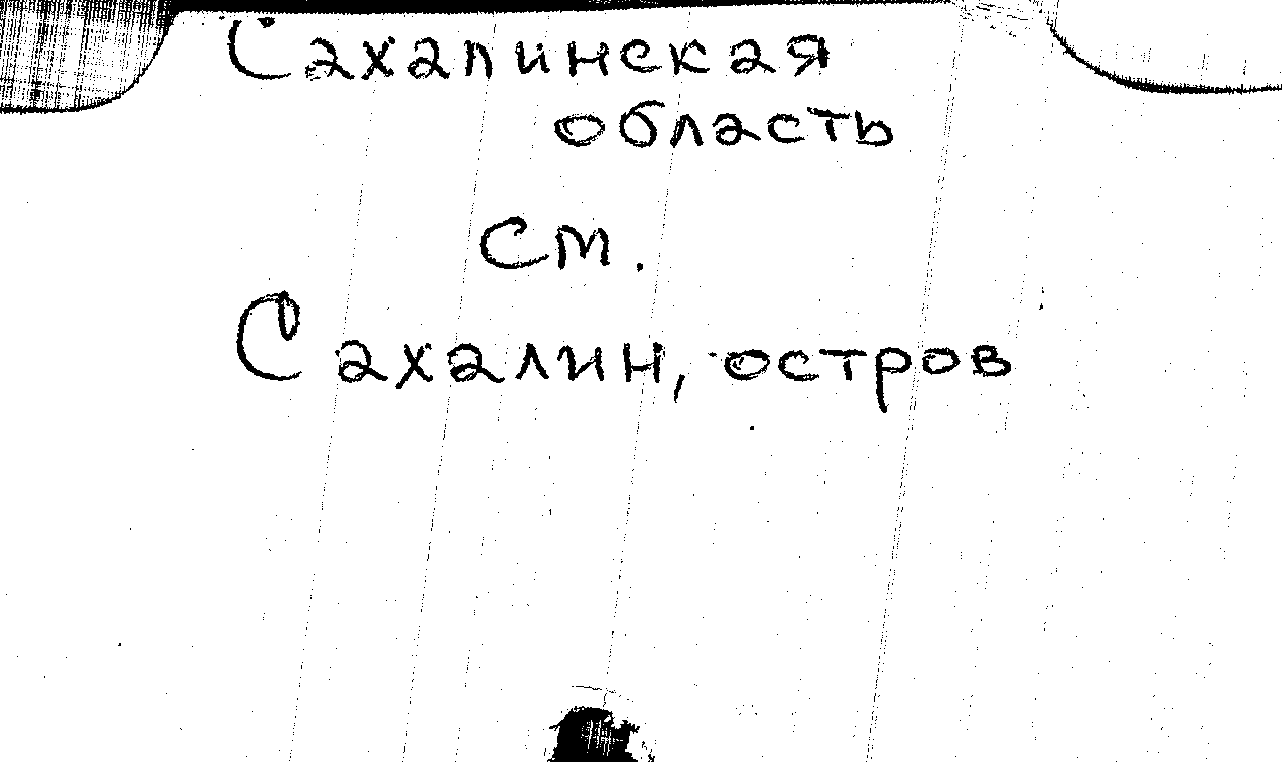 Сахалинская
область
см.
Сахалин, остров